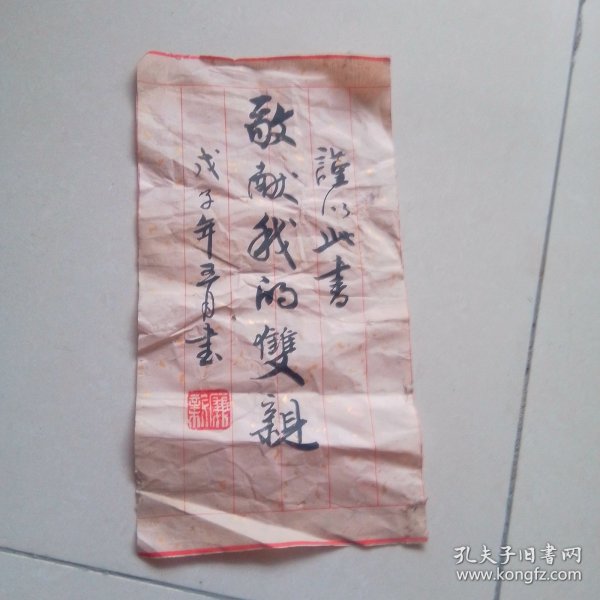 謹以此書
敬献我的雙親
戊子年五月书
孔夫子旧書网
www.kongfz.com